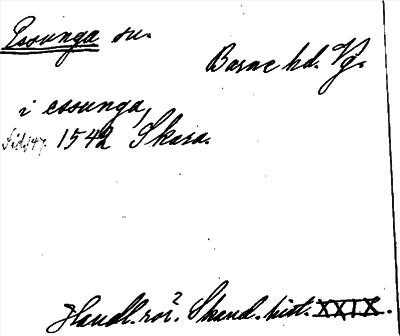 Essunga sn.
Barne hd. Vg.
i essunga,
Sid 147. 1542 Skara.
Handl. rör? Skand. hist. XXIX.